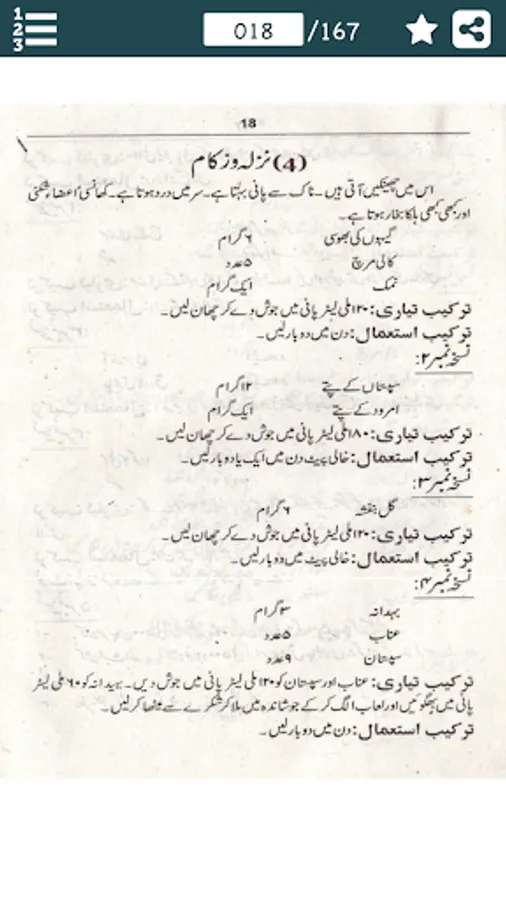 1
2
3
018 /167
18
(4) نزلہ و زکام
اس میں چھینکیں آتی ہیں۔ ناک سے پانی بہتا ہے۔ سر میں درد ہوتا ہے۔ کھانسی اعضاء شکنی
اور کبھی کبھی ہلکا بخار ہوتا ہے۔
گیہوں کی بھوسی ۶ گرام
کالی مرچ ۵ عدد
نمک ایک گرام
ترکیب تیاری: ۱۲۰ ملی لیٹر پانی میں جوش دے کر چھان لیں۔
ترکیب استعمال: دن میں دو بار لیں۔
نسخہ نمبر ۲:
سپستاں کے پتے ۱۲ گرام
امرود کے پتے ایک گرام
ترکیب تیاری: ۱۸۰ ملی لیٹر پانی میں جوش دے کر چھان لیں۔
ترکیب استعمال: خالی پیٹ دن میں ایک یا دو بار لیں۔
نسخہ نمبر ۳:
گل بنفشہ ۶ گرام
ترکیب تیاری: ۱۲۰ ملی لیٹر پانی میں جوش دے کر چھان لیں۔
ترکیب استعمال: خالی پیٹ میں دو بار لیں۔
نسخہ نمبر ۴:
بہدانہ ۳ گرام
عناب ۵ عدد
سپستان ۹ عدد
ترکیب تیاری: عناب اور سپستان کو ۱۲۰ ملی لیٹر پانی میں جوش دیں۔ بہیدانہ کو ۶۰ ملی لیٹر
پانی میں بھگوئیں اور لعاب الگ کر کے جوشاندہ میں ملا کر شکر سے میٹھا کر لیں۔
ترکیب استعمال: دن میں دو بار لیں۔